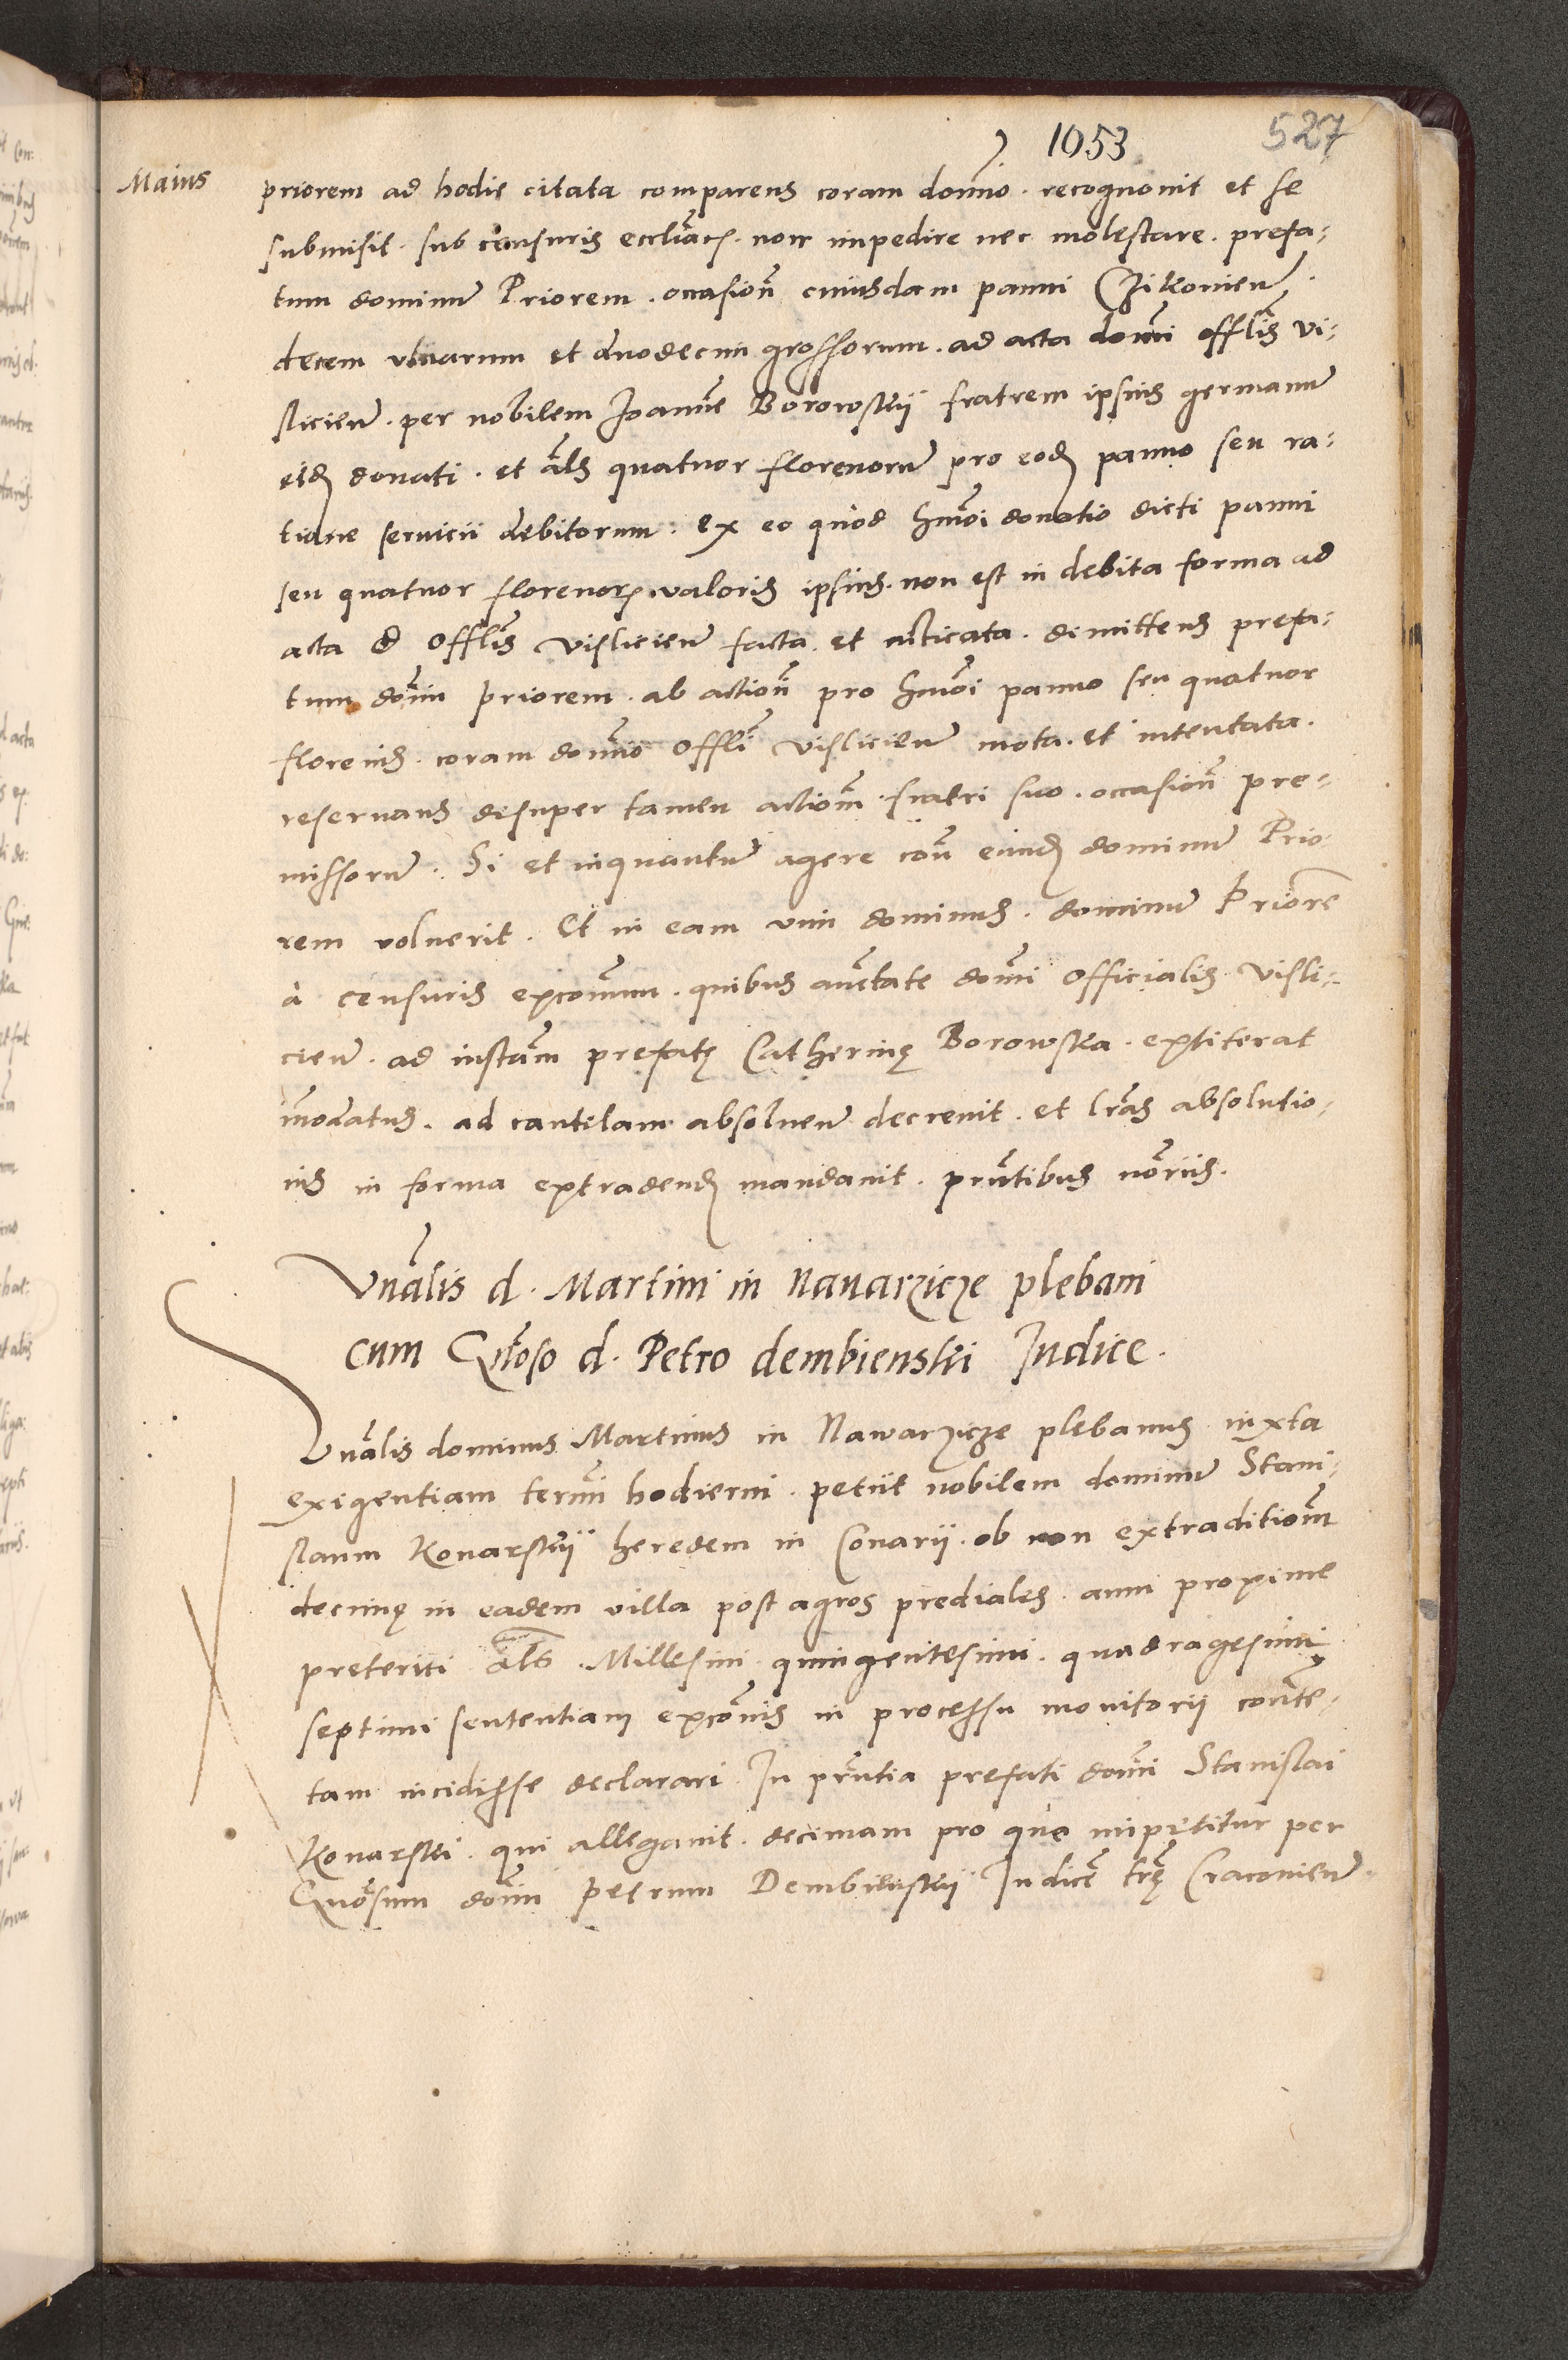 1053
527
Maius
priorem ad hodie citata comparens coram domīo. recognouit et se
submisit. sub censuris eccliācis. non impedire nec molestare. prefa-
tum dominū Priorem. occasionē cuiusdam panni Czikouien̄.
decem vlnarum et duodecim grossorum. ad acta domī offlīs vi-
sliclien̄. per nobilem Joannē Borowskij fratrem ipsius germanū
eidē donati. et āls quatuor florenorū pro eodē panno seu ra-
tione seruicii debitorum. ex eo quod hmōi donatio dicti panni
seu quatuor florenorū valoris ipsius. non est in debita forma ad
acta d Offlīs vislicien̄ facta. et acticata. dimittens prefa-
tum domī priorem. ab actionē pro hmōi panno seu quatuor
florenis. coram domīo Offlī vislicien̄ mota. et intentata.
reseruans desuper tamen actiōm fratri suo. occasionē pre-
missorū. Si et inquantū agere con̄ eundē dominū Prio
rem voluerit. Et in eam vim dominus. dominū Priorē
à censuris excōmun. quibus auctāte domī Officialis visli-
cien̄. ad instām prefatę Catherinę Borowska. extiterat
īnodatus. ad cautelam absoluen̄ decreuit. et lrās absolutio-
nis in forma extradendē mandauit. prn̄tibus nōriis.
Vnālis d. Martini in Nauarzicze plebani
cum Gn̄oso d. Petro dembienski Iudice.
Vnālis dominus Martinus in Nawarzicze plebanus iuxta
exigentiam termī hodierni. petiit nobilem dominū Stani-
slaum Konarskij heredem in Conarij. ob non extraditiōm
decimę in eadem villa post agros prediales. anni proxime
preteriti āls Millesimi quingentesimi. quadragesimi
septimi sententiam excōnis in processu monitorij conte-
tam incidisse declarari. In prn̄tia prefati domī Stanislai
Konarski. qui allegauit. decimam pro qua impetitur per
Gn̄osum domī Petrum Dembienskij Iudicē trę Cracouien̄.